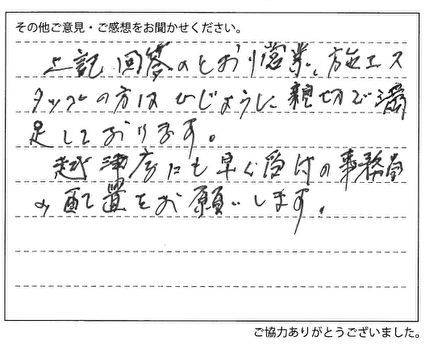 その他ご意見・ご感想をお聞かせください。
上記回答のとおり営業、施工ス
タッフの方はひじょうに親切で満
足しております。
越津店にも早く受付の事務員
の配置をお願いします。
ご協力ありがとうございました。